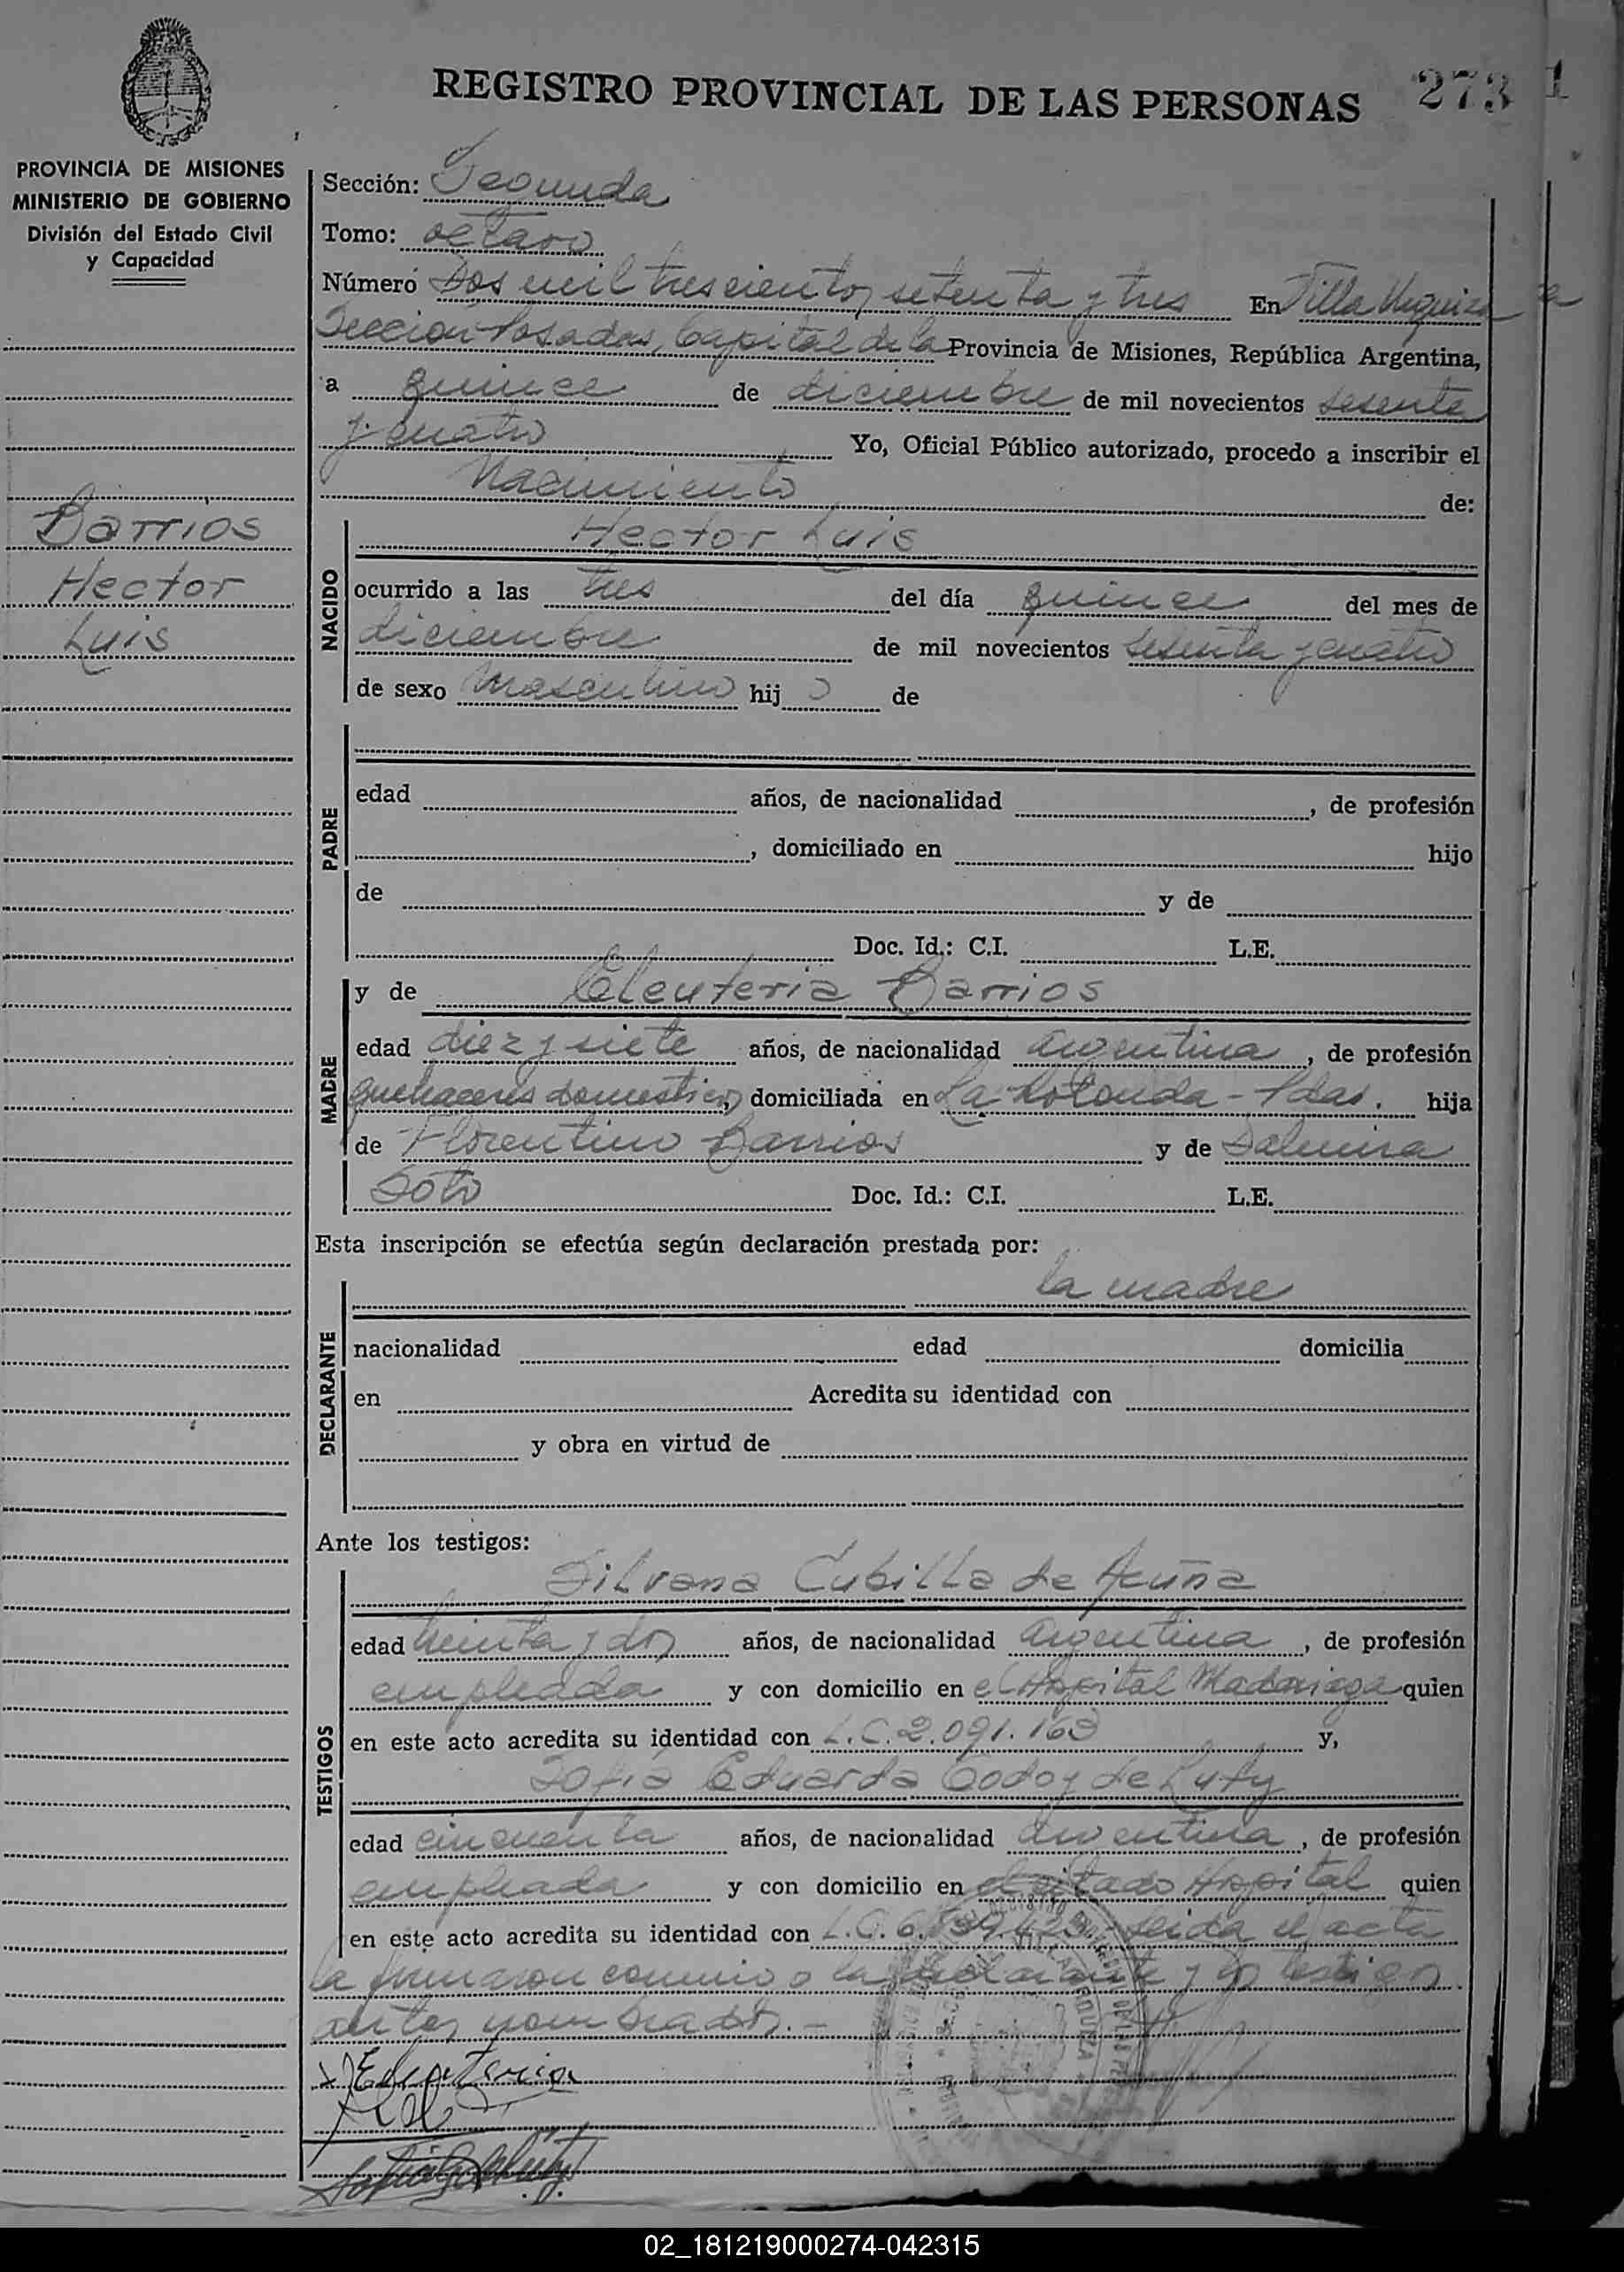 REGISTRO PROVINCIAL DE LAS PERSONAS 273 1
PROVINCIA DE MISIONES
MINISTERIO DE GOBIERNO
División del Estado Civil
y Capacidad
Barrios
Hector
Luis
Sección: Segunda
Tomo: octavo
Número Dos mil trescientos setenta y tres En Villa Urquiza
Sección Posadas, Capital de la Provincia de Misiones, República Argentina,
a quince de diciembre de mil novecientos sesenta
y cuatro Yo, Oficial Público autorizado, procedo a inscribir el
Nacimiento de:
NACIDO
Hector Luis
ocurrido a las tres del día quince del mes de
diciembre de mil novecientos sesenta y cuatro
de sexo Masculino hij o de
PADRE
edad años, de nacionalidad , de profesión
, domiciliado en hijo
de y de
Doc. Id.: C.I. L.E.
MADRE
y de Eleuteria Barrios
edad diez y siete años, de nacionalidad argentina, de profesión
quehaceres domesticos, domiciliada en La Rotonda - Pdas. hija
de Florentino Barrios y de Dalmira
Soto Doc. Id.: C.I. L.E.
Esta inscripción se efectúa según declaración prestada por:
DECLARANTE
la madre
nacionalidad edad domicilia
en Acredita su identidad con
y obra en virtud de
Ante los testigos:
TESTIGOS
Silvana Cubilla de Acuña
edad treinta y dos años, de nacionalidad argentina, de profesión
empleada y con domicilio en el Hospital Madariaga quien
en este acto acredita su identidad con L.C. 2.091.163 y,
Sofia Eduarda Godoy de Luty
edad cincuenta años, de nacionalidad argentina, de profesión
empleada y con domicilio en el citado Hospital quien
en este acto acredita su identidad con L.C. 6. Leida el acta
la firmaron conmigo la declarante y los testigos
antes nombrados.-
Eleuteria
02_181219000274-042315